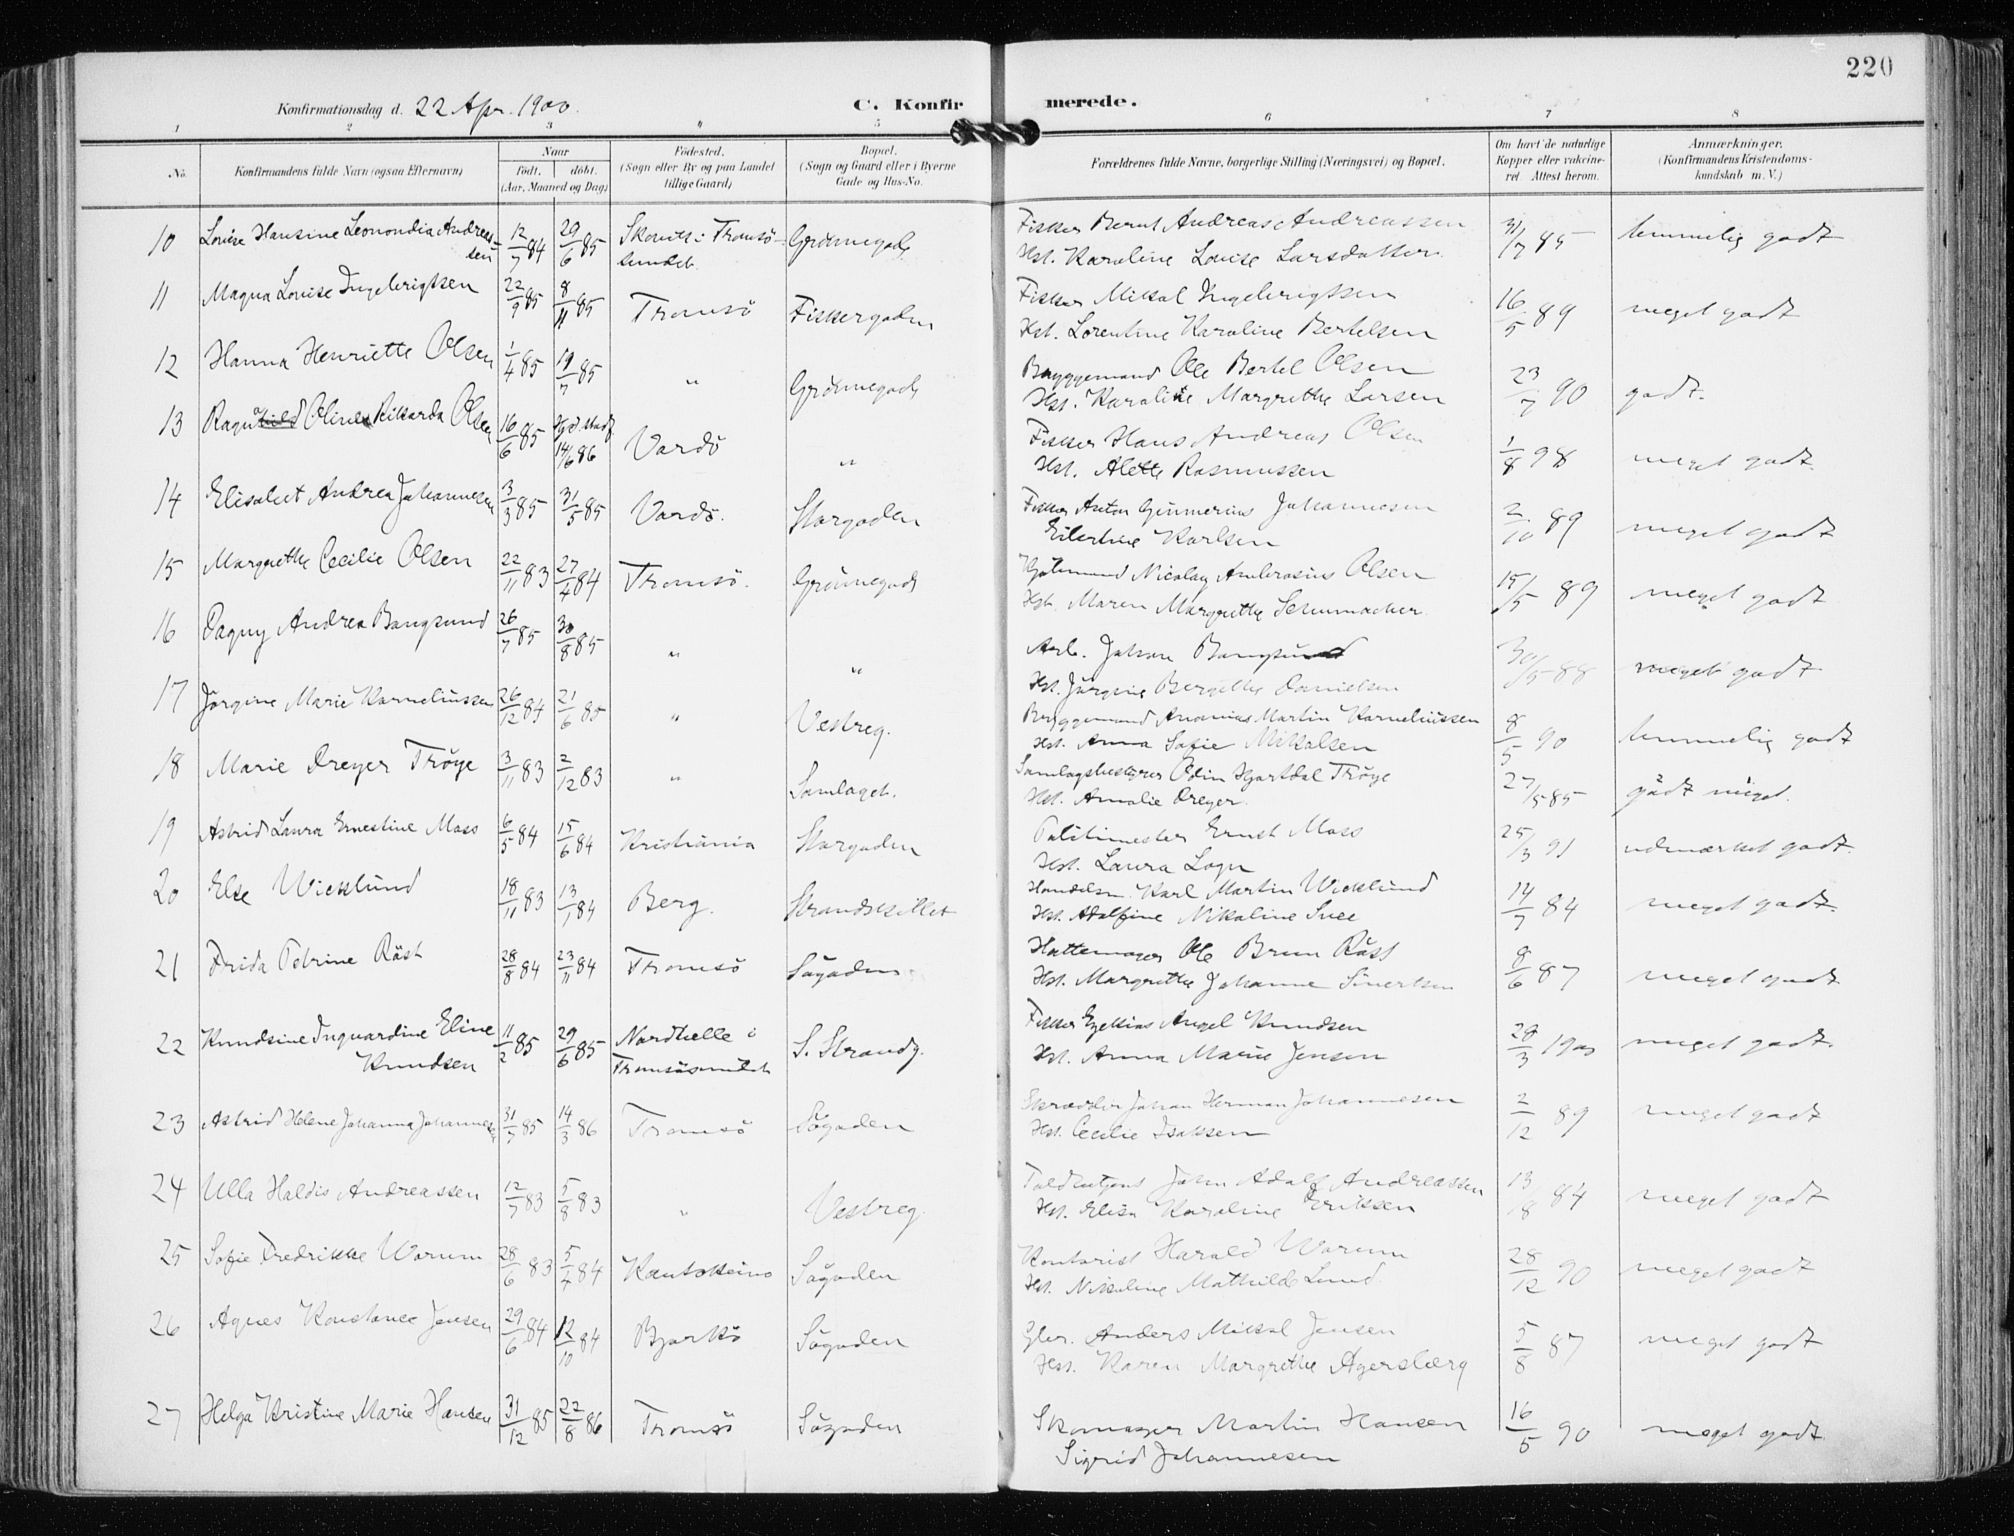 220
Konfirmationsdag d. 22 Apr. 1900.
C. Konfirmerede.
1 2 3 " 5 6 7 8
No. Konfirmandens fulde Navn (ogsaa Efternavn) Naar født. døbt. (Aar, Maaned og Dag) Fødested. (Sogn eller By og paa Landet tillige Gaard) Bopæl. (Sogn og Gaard eller i Byerne Gade og Hus-No. Forældrenes fulde Navne, borgerlige Stilling (Næringsvei) og Bopæl. Om havt de naturlige Kopper eller vakcineret. Attest herom. Anmærkninger. (Konfirmandens Kristendomskundskab m. V.)
10 Louise Hansine Leonondia Andreassen 12/7 84 29/6 85 i Tromsösundet Grönnegade Fisker Bernt Andreas Andreassen 31/7 85 temmelig godt
Hst. Karoline Louise Larsdatter
11 Magna Louise Ingebrigtsen 22/9 85 8/11 85 Tromsö Fiskergaden Fisker Mikal Ingebrigtsen 16/5 89 meget godt
Hst. Lorentine Karoline Bertelsen
12 Hanna Henriette Olsen 1/4 85 19/7 85 " Grönnegade Bryggemand Ole Bertel Olsen 23/7 90 godt.
Hst. Karoline Margrethe Larsen
13 Ragnhild Oline Rikarda Olsen 16/6 85 14/6 86 Vardö " Fisker Hans Andreas Olsen 1/8 98 meget godt.
Hst. Alette Rasmussen
14 Elisabet Andrea Johannesen 3/3 85 31/5 85 Vardö. Storgaden Fisker Anton Johannesen 2/10 89 meget godt
Eilertine Karlsen
15 Margrethe Cecilie Olsen 22/11 83 27/4 84 Tromsö. Grönnegade Nicolay Ambrosius Olsen 15/5 89 meget godt
Hst. Maren Margrethe Schumacher
16 Dagny Andrea Bangsund 26/7 85 30/8 85 " " Arb. Johan Bangsund 30/5 88 meget godt
Hst. Jörgine Bergitte Danielsen
17 Jörgine Marie Korneliussen 26/12 84 21/6 85 " Vestreg. Bryggemand Ananias Martin Korneliussen 8/5 90 temmelig godt
Hst. Anna Sofie Mikalsen
18 Marie Dreyer Tröye 3/11 83 2/12 83 " Samlaget. Samlagsbestyrer Odin Hjartdal Tröye 27/5 85 godt meget.
Hst. Amalie Dreyer.
19 Astrid Laura Ernestine Moss 6/5 84 15/6 84 Kristiania Storgaden Politimester Ernst Moss 25/3 91 udmærket godt.
Hst. Laura Logn
20 Else Wicklund 18/11 83 13/1 84 Berg. Strandskillet Handelsm. Karl Martin Wicklund 14/7 84 meget godt.
Hst. Adolfine Nikoline
21 Frida Petrine Räst 28/8 84 23/11 84 Tromsö Sögaden Hattemager Ole Brun Räst 8/6 87 meget godt
Hst. Margrethe Johanne Sivertsen
22 Knudsine Ingvardine Eline Knudsen 11/2 85 29/6 85 i Tromsösundet S. Strandg. Fisker Angel Knudsen 28/3 1900 meget godt.
Hst. Anna Marie Jensen
23 Astrid Helene Johanna Johannesen 31/7 85 14/3 86 Tromsö Sögaden Skrædder Johan Herman Johannesen 2/12 89 meget godt
Hst. Cecilie Isaksen
24 Ulla Haldis Andreassen 12/7 83 5/8 83 " Vestreg. John Adolf Andreassen 13/8 84 meget godt
Hst. Elisa Karoline Eriksen
25 Sofie Fredrikke Warum 28/6 83 5/4 84 Kautokeino Sögaden Kontorist Harald Warum 28/12 90 meget godt
Hst. Nikoline Mathilde Lund.
26 Agnes Konstance Jensen 29/6 84 12/10 84 Bjarkö Sögaden Anders Mikal Jensen 5/8 87 meget godt
Hst. Karen Margrethe Agersberg
27 Helga Kristine Marie Hansen 31/12 85 22/8 86 Tromsö Sögaden Skomager Martin Hansen 16/5 90 meget godt.
Sigrid Johannesen